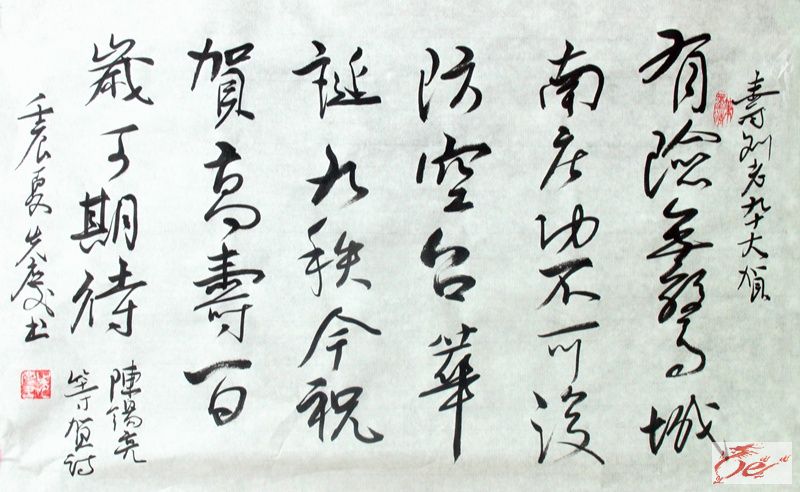 寿刘老九十大贺
有險無驚司城
南店功不可没
防空台華
誕九秩今祝
賀高壽百
歲可期待
陳錫亮
等賀詩
壬辰夏 先慶书